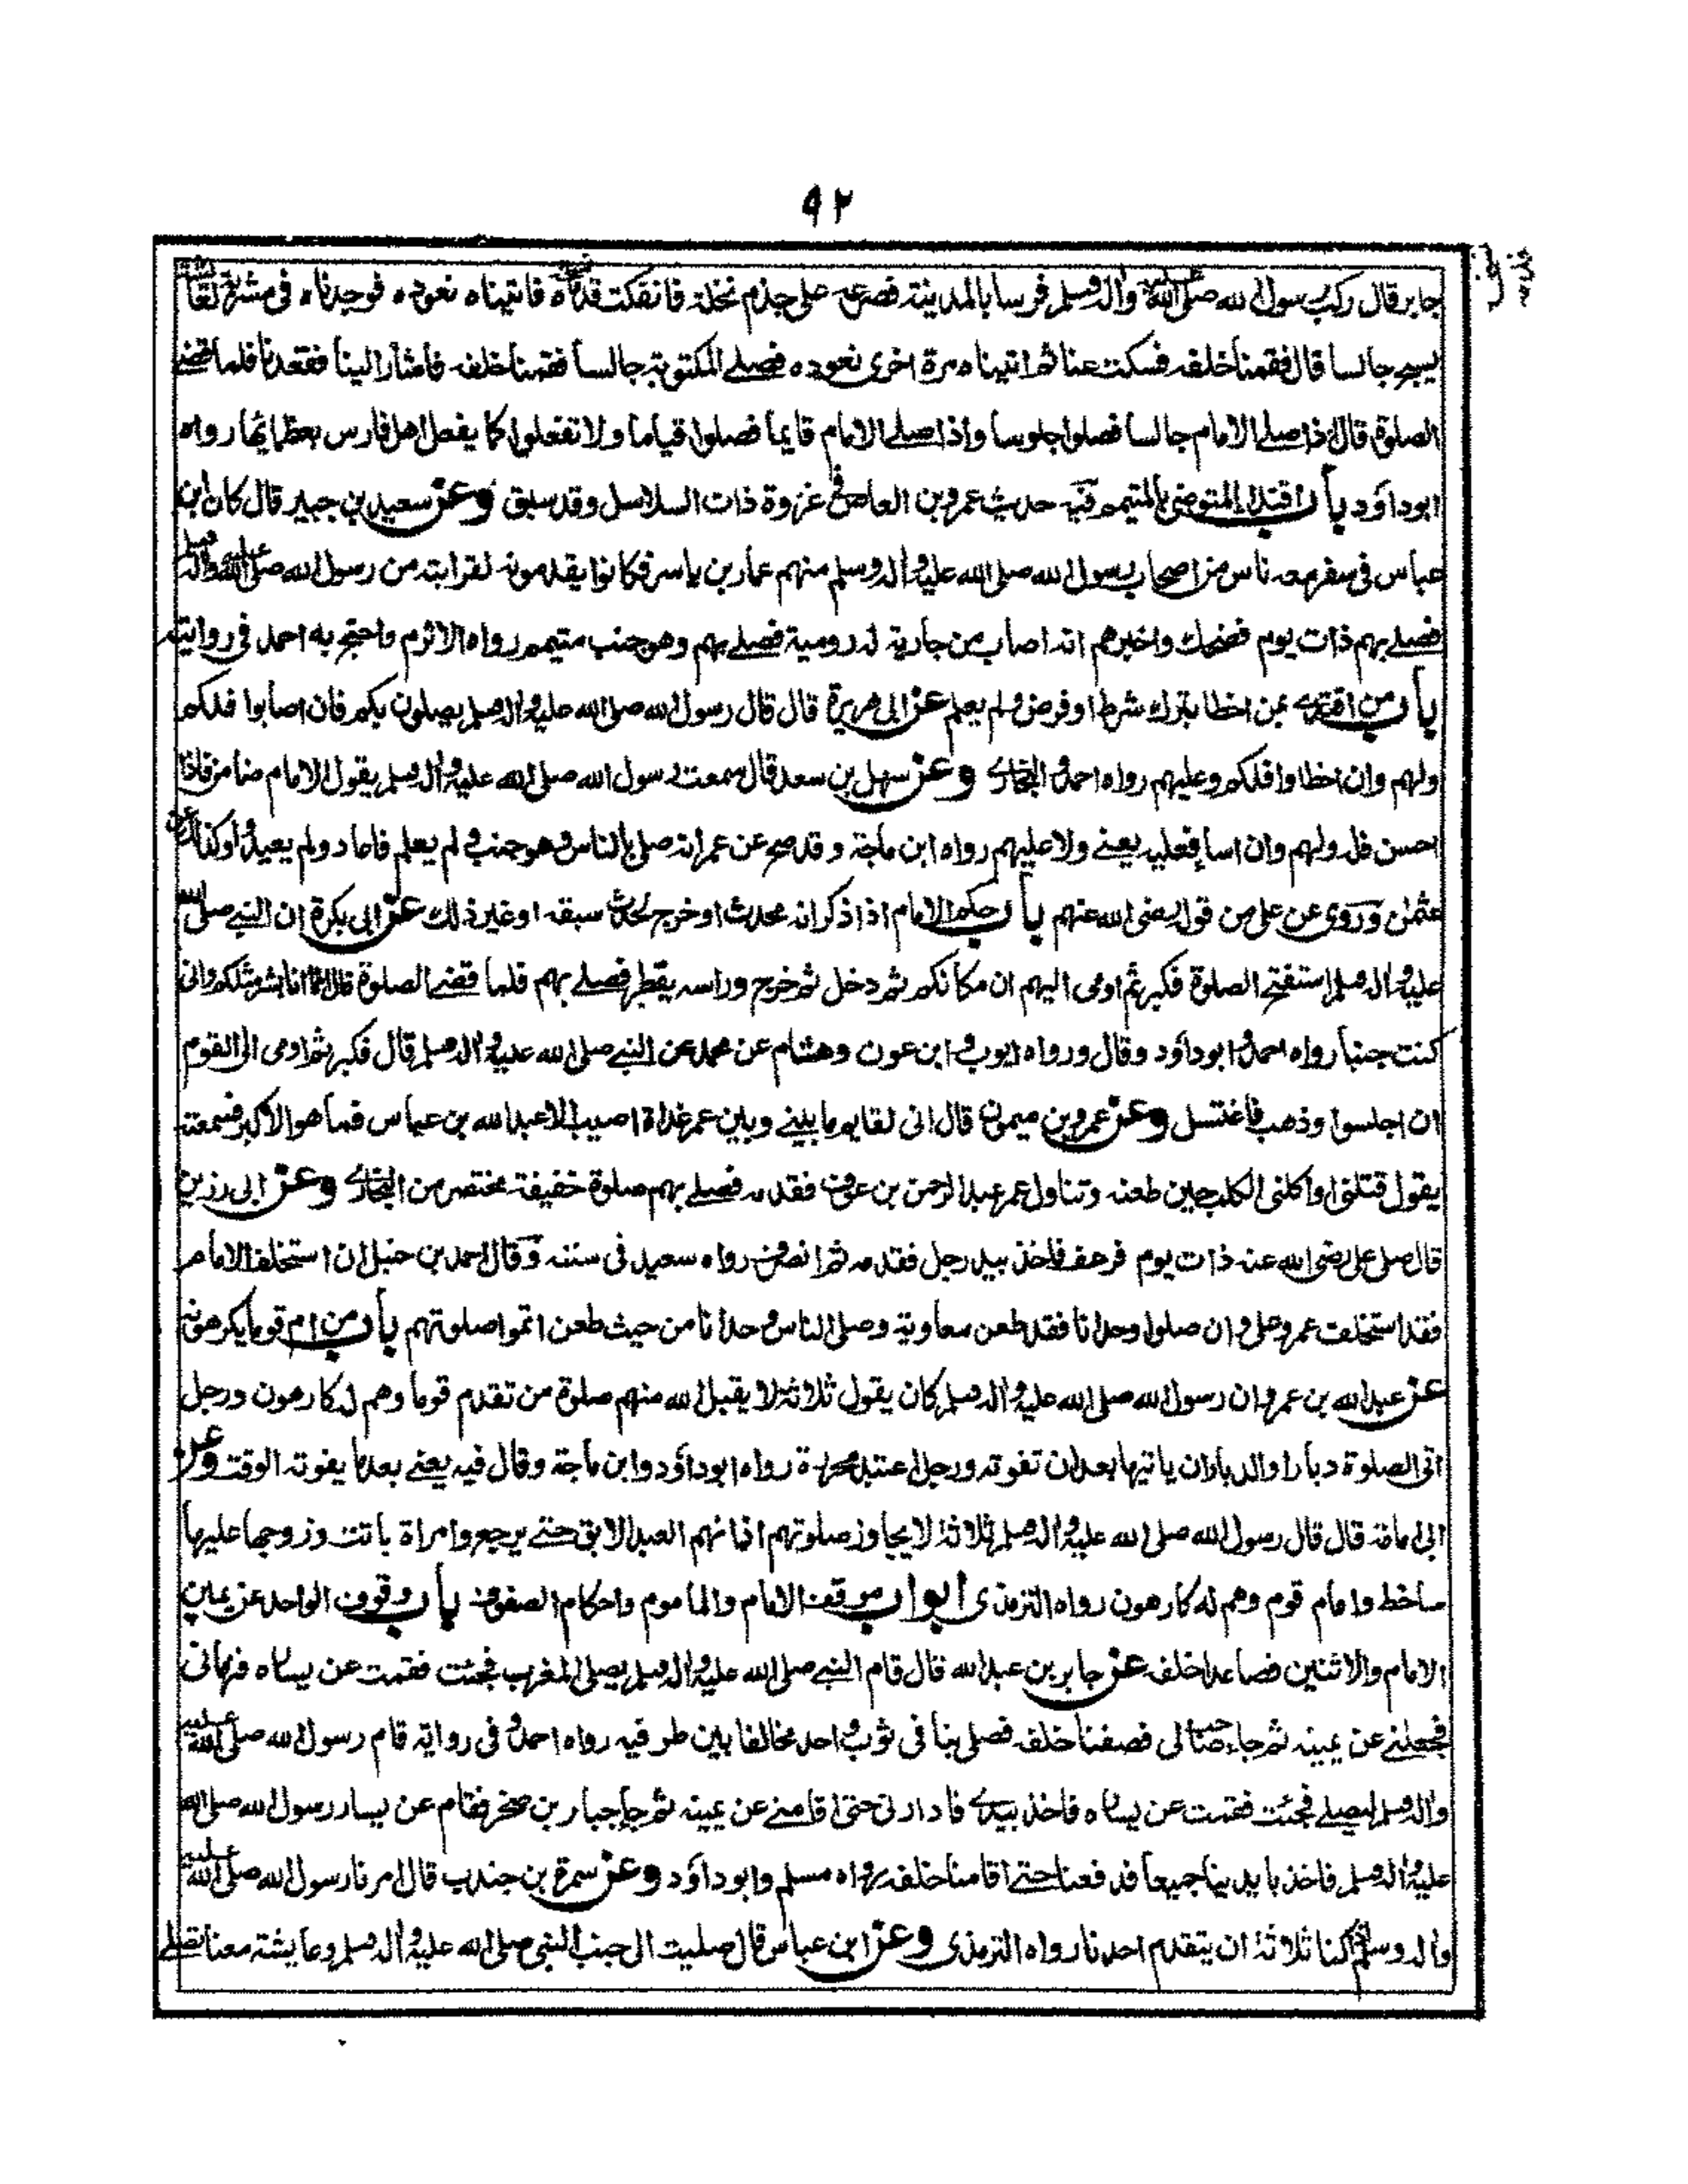 ٩٢
جابر قال ركب رسول الله صلى الله عليه واله وسلم فرسا بالمدينة فصرعه على جذم نخلة فانفكت قدمه فاتيناه نعوده فوجدناه فى مشربة لعائشة
يسبح جالسا قال فقمنا خلفه فسكت عنا ثم اتيناه مرة اخرى نعوده فصلى المكتوبة جالسا فقمنا خلفه فاشار الينا فقعدنا فلما قضى
الصلوة قال اذا صلى الامام جالسا فصلوا جلوسا واذا صلى الامام قايما فصلوا قياما ولا تفعلوا كما يفعل اهل فارس بعظمائها رواه
ابو داؤد باب اقتداء المتوضى بالمتيمم فيه حديث عمرو بن العاص فى غزوة ذات السلاسل وقد سبق وعن سعيد بن جبير قال كان ابن
عباس فى سفر معه ناس من اصحاب رسول الله صلى الله عليه واله وسلم منهم عمار بن ياسر فكانوا يقدمونه لقرابته من رسول الله صلى الله عليه واله وسلم
فصلى بهم ذات يوم فضحك واخبرهم انه اصاب من جارية له رومية فصلى بهم وهو جنب متيمم رواه الاثرم واحتج به احمد فى روايته
باب من اقتدى بمن اخطا بترك شرط او فرض ولم يعلم عن ابى هريرة قال قال رسول الله صلى الله عليه واله وسلم يصلون بكم فان اصابوا فلكم
ولهم وان اخطاوا فلكم وعليهم رواه احمد والبخارى وعن سهل بن سعد قال سمعت رسول الله صلى الله عليه واله وسلم يقول الامام ضامن فاذا
احسن فله ولهم وان اساء فعليه يعنى ولا عليهم رواه ابن ماجة وقد صح عن عمر انه صلى بالناس وهو جنب ولم يعلم فاعاد ولم يعيدوا وكذلك عن
عثمن وروى عن على من قوله رضى الله عنهم باب حكم الامام اذا ذكر انه محدث او خرج لحدث سبقه او غير ذلك عن ابى بكرة ان النبى صلى الله
عليه واله وسلم استفتح الصلوة فكبر ثم اومى اليهم ان مكانكم ثم دخل ثم خرج وراسه يقطر فصلى بهم فلما قضى الصلوة قال انما انا بشر مثلكم وانى
كنت جنبا رواه احمد وابو داؤد وقال ورواه ايوب وابن عون وهشام عن محمد عن النبى صلى الله عليه واله وسلم قال فكبر ثم اومى الى القوم
ان اجلسوا وذهب فاغتسل وعن عمرو بن ميمون قال انى لقايم ما بينى وبين عمر غداة اصيب الا عبد الله بن عباس فما هو الا كبر فسمعته
يقول قتلنى او اكلنى الكلب حين طعنه وتناول عمر عبد الرحمن بن عوف فقدمه فصلى بهم صلوة خفيفة مختصر من البخارى وعن ابى رزين
قال صلى على رضى الله عنه ذات يوم فرعف فاخذ بيد رجل فقدمه ثم انصرف رواه سعيد فى سننه وقال احمد بن حنبل ان استخلف الامام
فقد استخلف عمر وعلى وان صلوا وحدانا فقد طعن معاوية وصلى الناس وحدانا من حيث طعن اتموا صلوتهم باب من ام قوما يكرهونه
عن عبد الله بن عمرو ان رسول الله صلى الله عليه واله وسلم كان يقول ثلاثة لا يقبل الله منهم صلوة من تقدم قوما وهم له كارهون ورجل
اتى الصلوة دبارا والدبار ان ياتيها بعد ان تفوته ورجل اعتبد محررة رواه ابو داؤد وابن ماجة وقال فيه يعنى بعد ما يفوته الوقت وعن
ابى امامة قال قال رسول الله صلى الله عليه واله وسلم ثلاثة لا يجاوز صلوتهم اذانهم العبد الابق حتى يرجع وامراة باتت وزوجها عليها
ساخط وامام قوم وهم له كارهون رواه الترمذى ابواب موقف الامام والماموم واحكام الصفوف باب وقوف الواحد عن يمين
الامام والاثنين فصاعدا خلفه عن جابر بن عبد الله قال قام النبى صلى الله عليه واله وسلم يصلى المغرب فجئت فقمت عن يساره فنهانى
فجعلنى عن يمينه ثم جاء صاحب لى فصفنا خلفه فصلى بنا فى ثوب واحد مخالفا بين طرفيه رواه احمد وفى رواية قام رسول الله صلى الله عليه
واله وسلم ليصلى فجئت فقمت عن يساره فاخذ بيدى فادارنى حتى اقامنى عن يمينه ثم جاء جبار بن صخر فقام عن يسار رسول الله صلى الله
عليه واله وسلم فاخذ بايدينا جميعا فدفعنا حتى اقامنا خلفه رواه مسلم وابو داؤد وعن سمرة بن جندب قال امرنا رسول الله صلى الله عليه
واله وسلم اذا كنا ثلاثة ان يتقدم احدنا رواه الترمذى وعن ابن عباس قال صليت الى جنب النبى صلى الله عليه واله وسلم وعايشة معنا تصلى